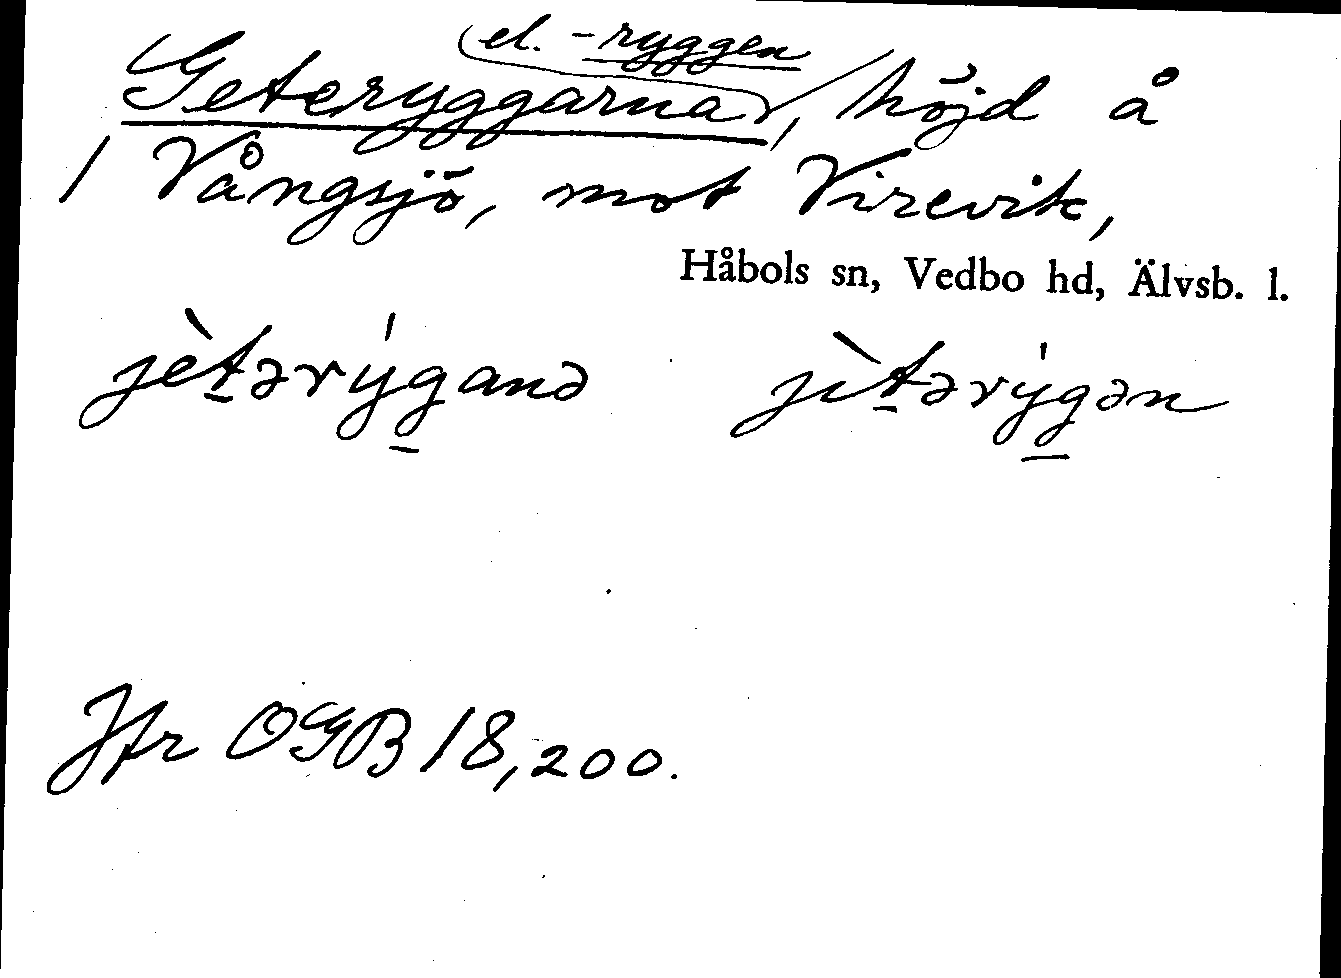 (el. -ryggen)
Geteryggarna, höjd å
1 Vångsjö, mot Virevik,
Håbols sn, Vedbo hd, Älvsb. l.
jètərýganə jìtərýgən
Jfr OGB 18,200.